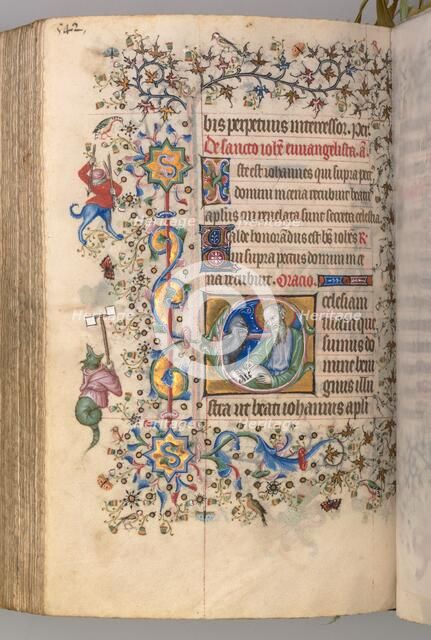 542.
bis perpetuus intercessor. per
De sancto ioh̄e euuangelista. a.
Iste est iohannes qui supra pec
domini in cena recubuit beatꝰ
aplūs cui reuelata sunt secreta celestia
Valde honorādus est bs̄ iohēs R
in supra pectus domini in ce
na recubuit. Oracio.
Ecclesiam
tuam que
sumus do
mine beni
gnius illu
stra ut beati iohannis apli
S
S
Heritage
Images